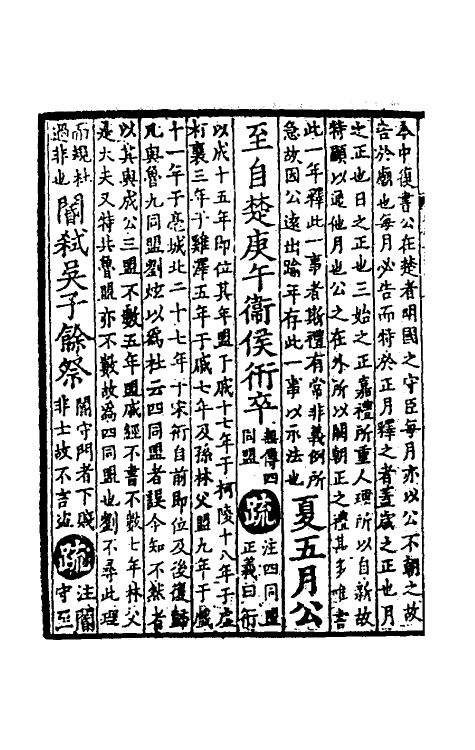 奉中復書公在楚者明國之守臣每月亦以公不朝之故
告於廟也每月必告而特於正月釋之者蓋歲之正也月
之正也日之正也三始之正嘉禮所重人理所以自新故
特顯以通他月也公之在外所以闕朝正之禮甚多唯書
此一年釋此一事者斯禮有常非義例所
急故因公遠出踰年存此一事以示法也
夏五月公
至自楚庚午衛侯衎卒
無傳四
同盟
疏
注四同盟
正義曰衎
以成十五年即位其年盟于戚十七年于柯陵十八年于虛
朾襄三年于雞澤五年于戚七年及孫林父盟九年于戲
十一年于亳城北二十七年于宋衎自前即位及後復歸
凡與魯九同盟劉炫以爲杜云四同盟者誤今知不然者
以其與成公三盟不數五年盟戚經不書不數七年林父
是大夫又特共魯盟亦不數故爲四同盟也劉不尋此理
而規杜
過非也
閽弒吳子餘祭
閽守門者下賤
非士故不言盜
疏
注閽
守至